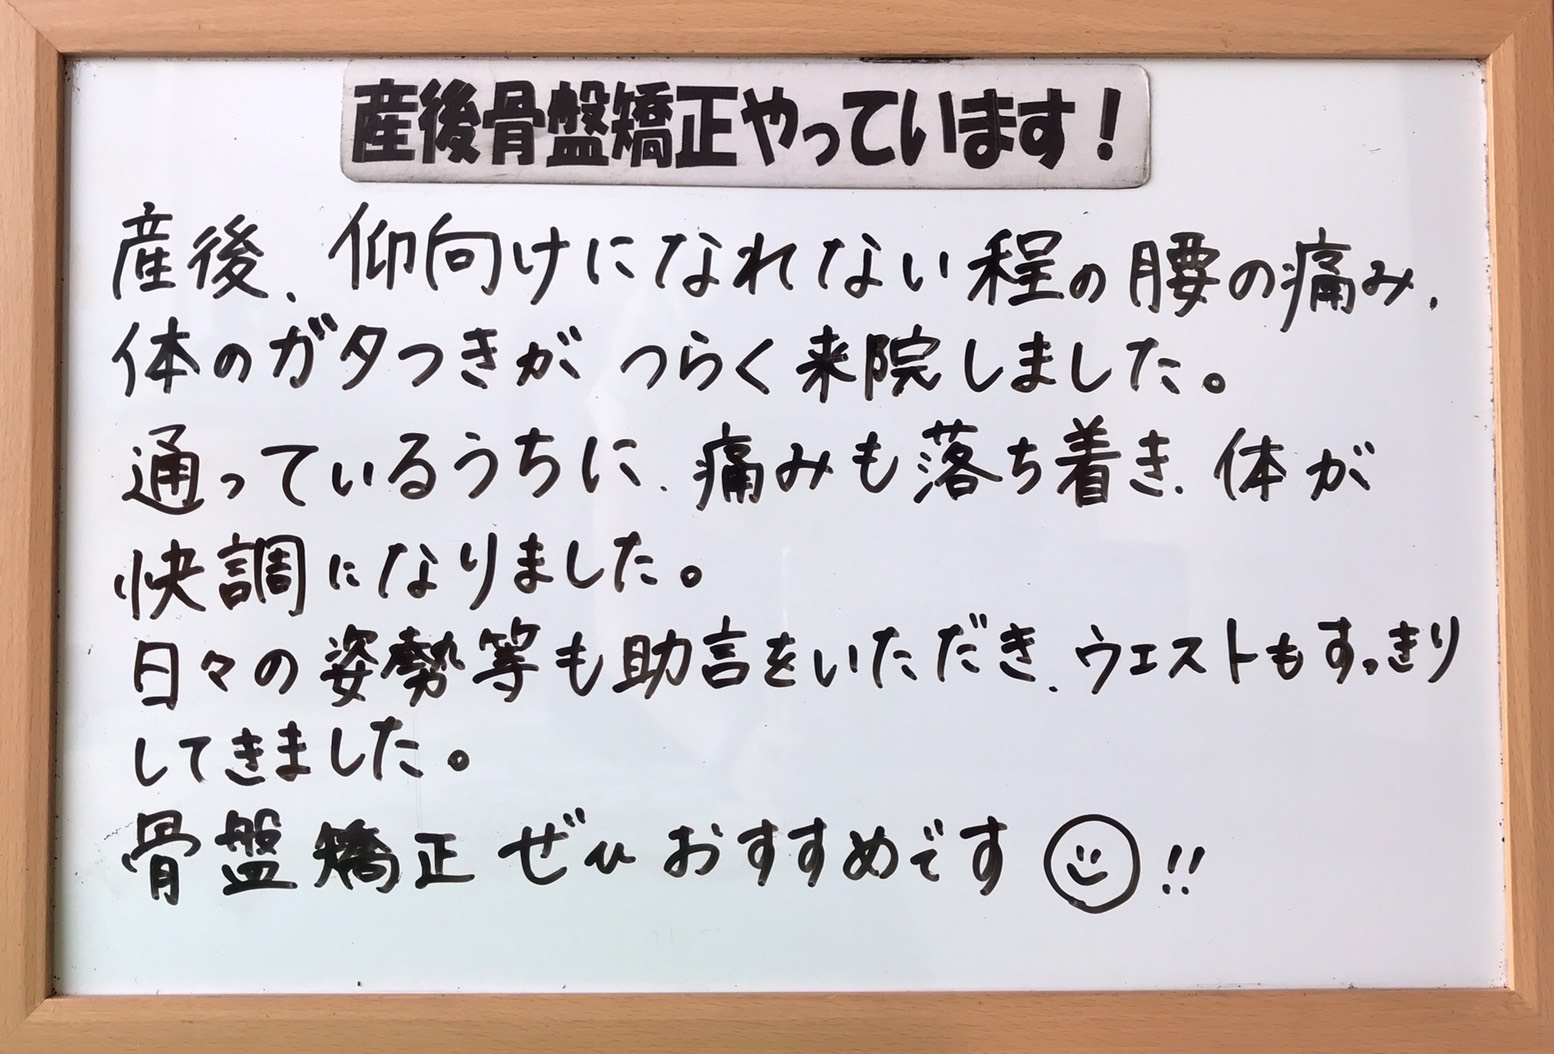 産後骨盤矯正やっています！
産後、仰向けになれない程の腰の痛み、
体のガタつきが つらく来院しました。
通っているうちに、痛みも落ち着き、体が
快調になりました。
日々の姿勢等も助言をいただき、ウエストもすっきり
してきました。
骨盤矯正ぜひおすすめです!!